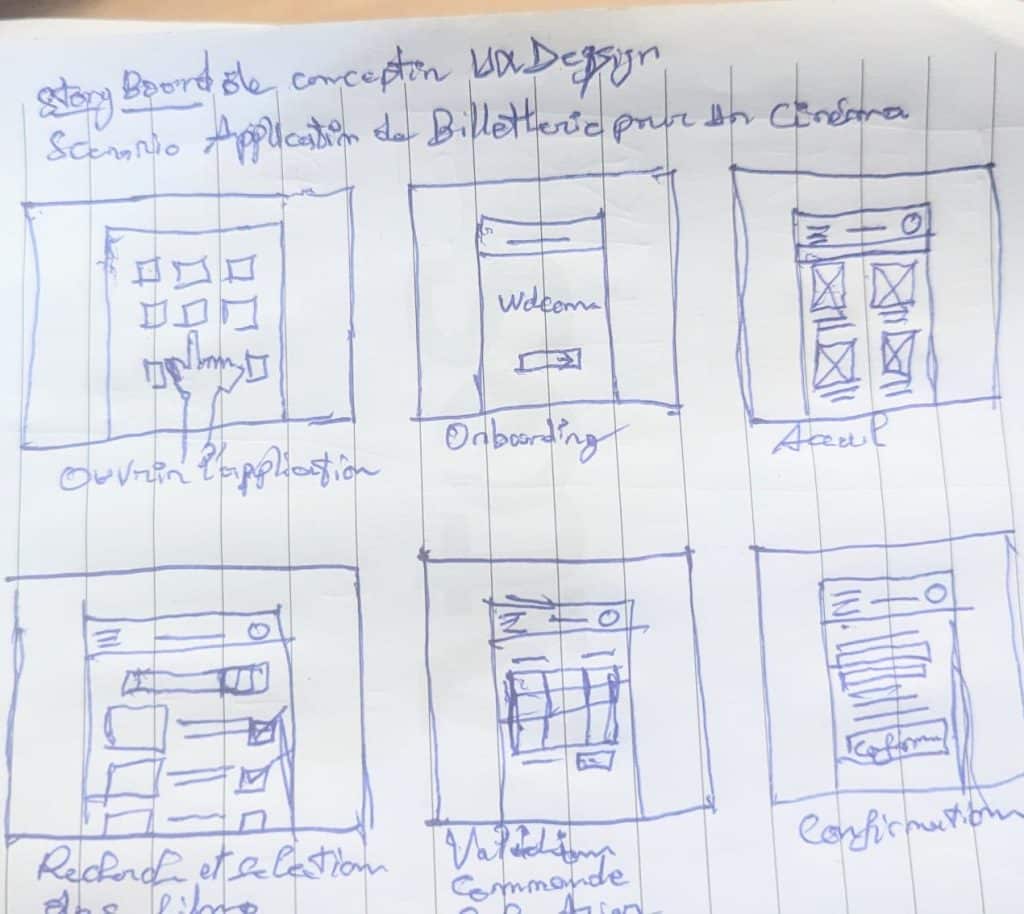 Story Board de conceptin UX Degsign
Scenario Application de Billetterie pour un Cinéma
Welcome
Ouvrir l'application
Onboarding
Acceuil
Confirm
Recherch et selection
des films
Validation
Commande
Confirmation